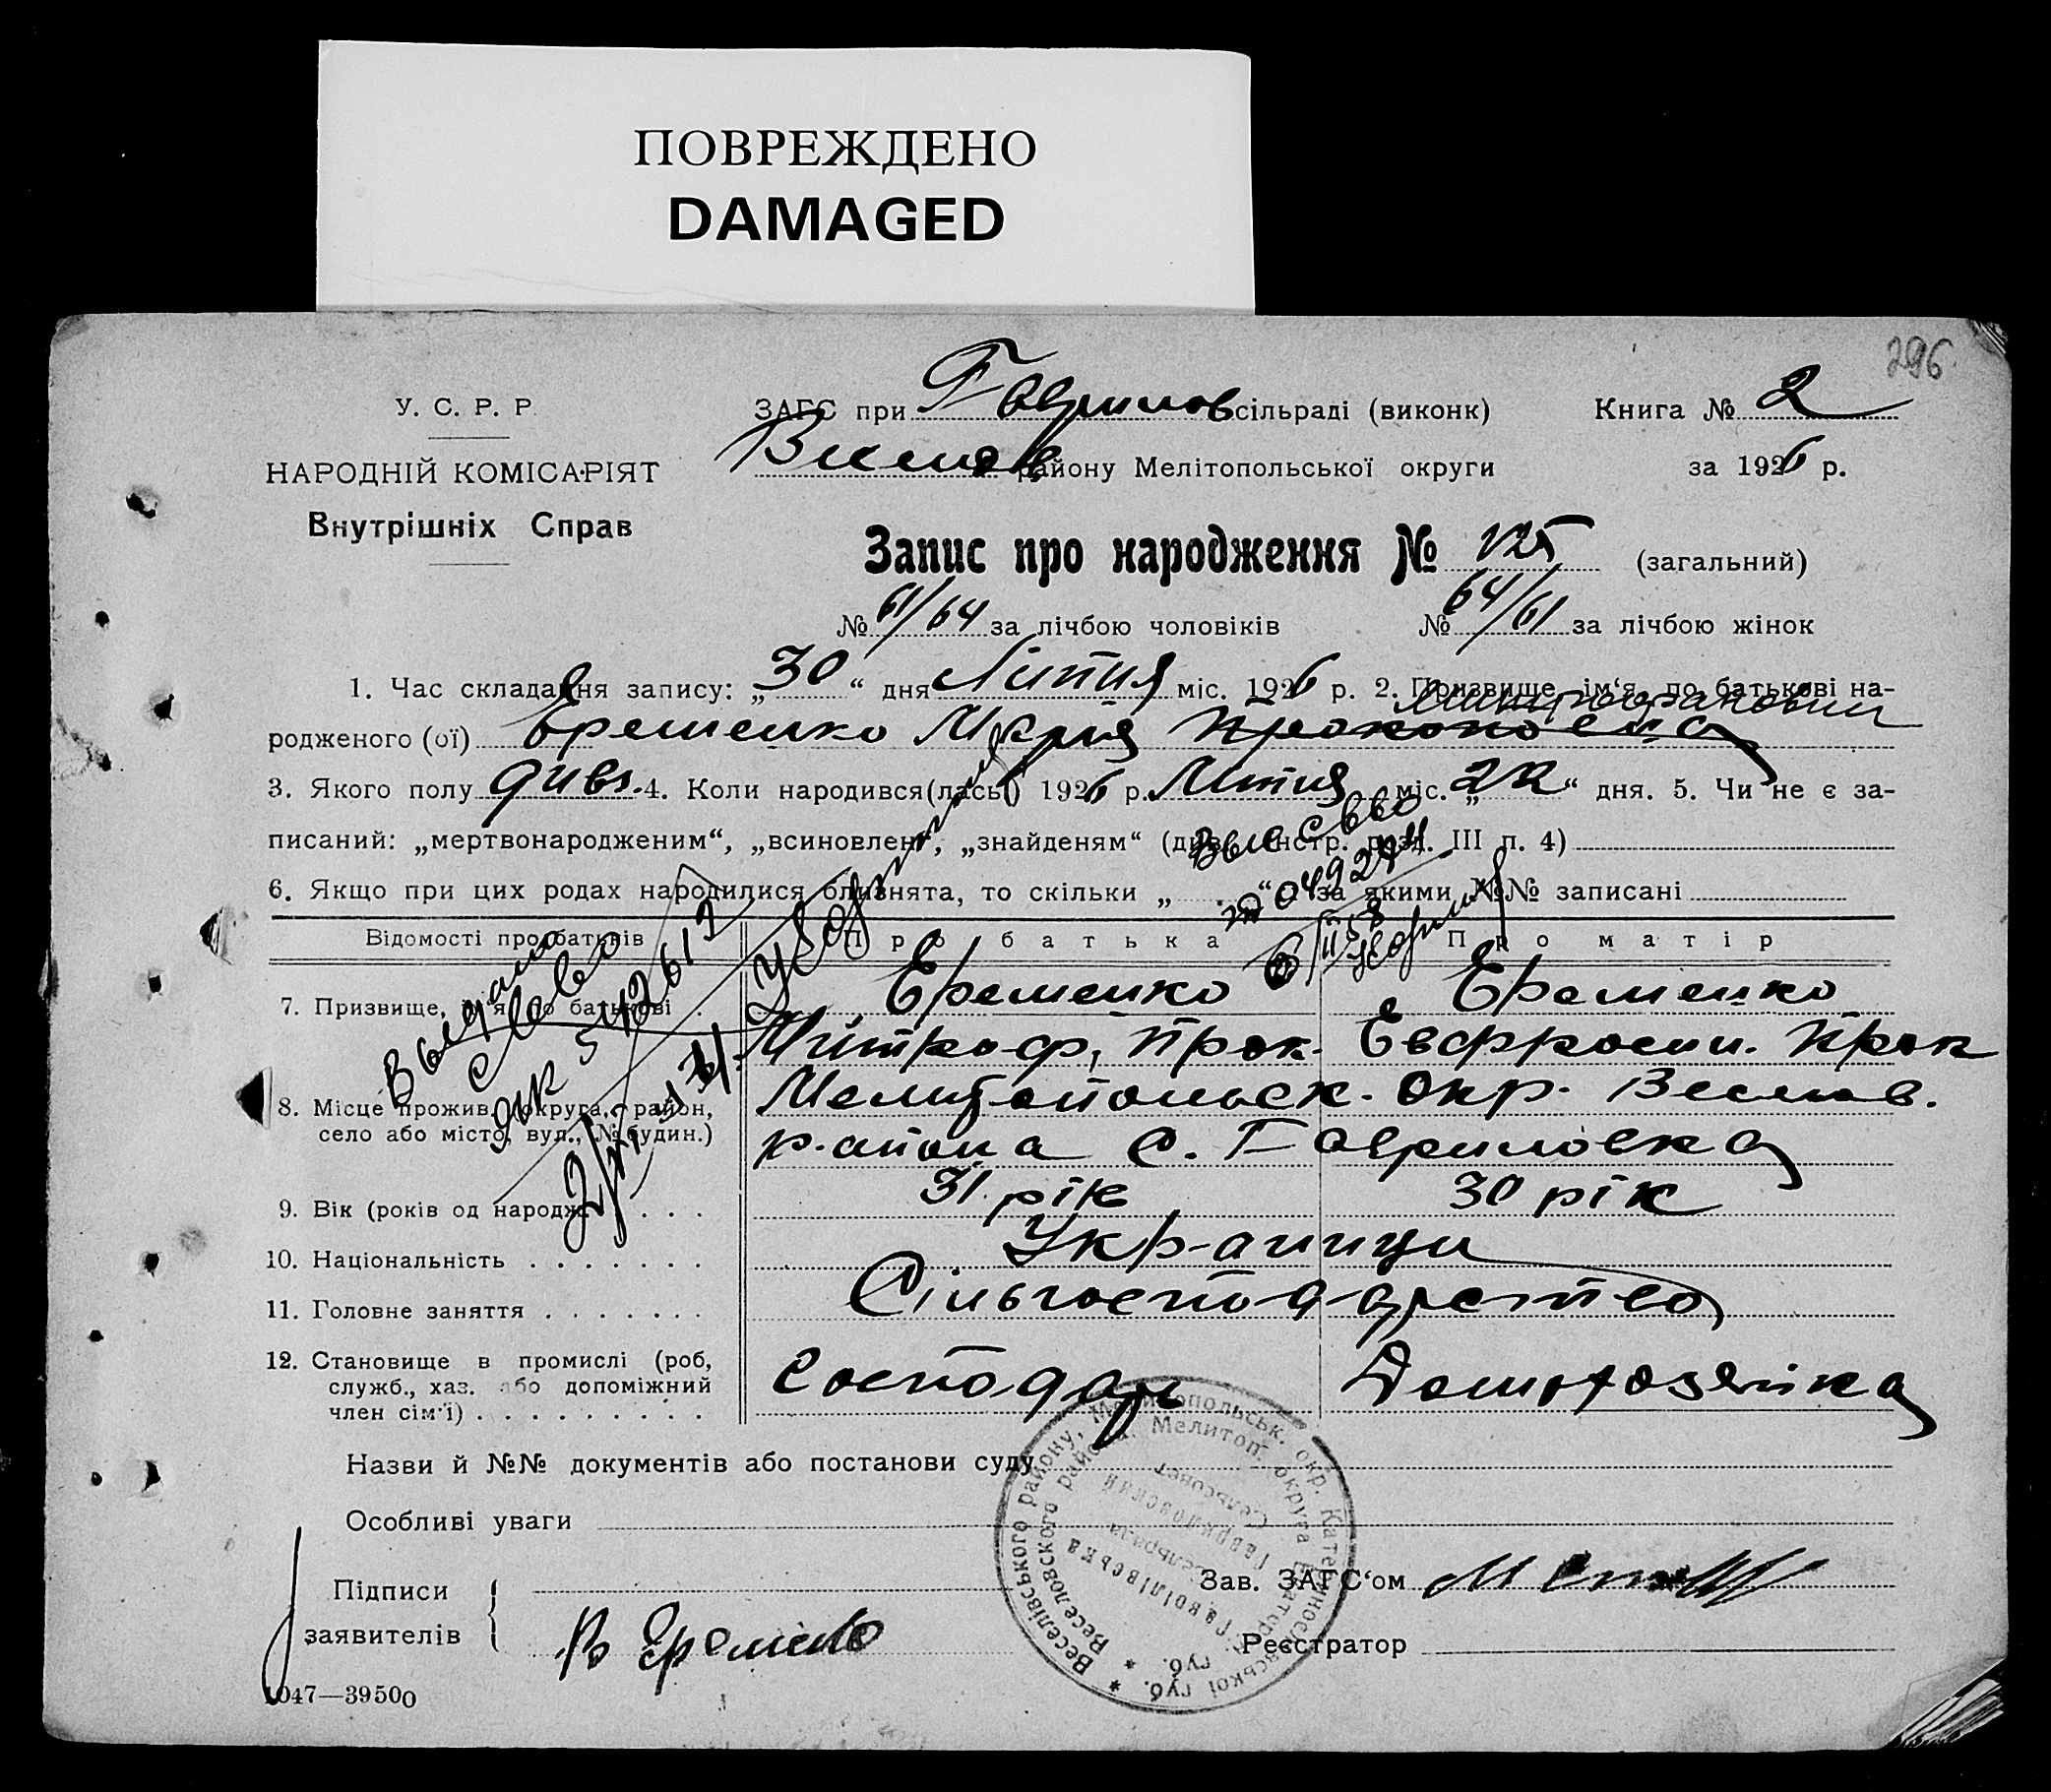 ПОВРЕЖДЕНО
DAMAGED
296
У. С. Р. Р.
НАРОДНІЙ КОМІСАРІЯТ
Внутрішніх Справ
ЗАГС при Гаврилов сільраді (виконк) Книга № 2
району Мелітопольської округи за 1926 р.
Запис про народження № 125 (загальний)
№ 61/64 за лічбою чоловіків № 64/61 за лічбою жінок
1. Час складання запису: „30“ дня Липня міс. 1926 р. 2. Призвище, ім'я, по батькові на-
Митрофановна
родженого (ої) Еременко Марія Прокоповна
3. Якого полу дивч. 4. Коли народився(лась) 1926 р. Липня міс. „22“ дня. 5. Чи не є за-
писаний: „мертвонародженим“, „всиновлен“, „знайденям“ (див. інстр. розд. III п. 4)
6. Якщо при цих родах народилися близнята, то скільки „ . . “ за якими №№ записані
Відомості про батьків Про батька Про матір
7. Призвище, ім'я, по батькові . Еременко Еременко
Митроф. Прок. Евфросин. Прок
8. Місце прожив. (округа, район, Мелитопольск. окр. Веселов.
село або місто, вул., № будин.) района с. Гавриловка
9. Вік (років од народж.) . . . 31 рік 30 рік
10. Національність . . . . . . . Украинци
11. Головне заняття . . . . . . . Сільгосподарство
12. Становище в промислі (роб, Господарь Домохозяйка
служб., хаз. або допоміжний
член сім'ї) . . . . . . . . .
Назви й №№ документів або постанови суду
Особливі уваги
Підписи
заявителів
Еременко
Зав. ЗАГС'ом
Реєстратор
1047—39500
Веселівського району, Мелітопольськ. окр. Катеринославської губ.
Веселовского района Мелитоп. округа Екатер. губ.
Гаврілівська
сельрада
Гавриловский
Сельсовет
Выдано
св-во
542612
Выс св-во
049274